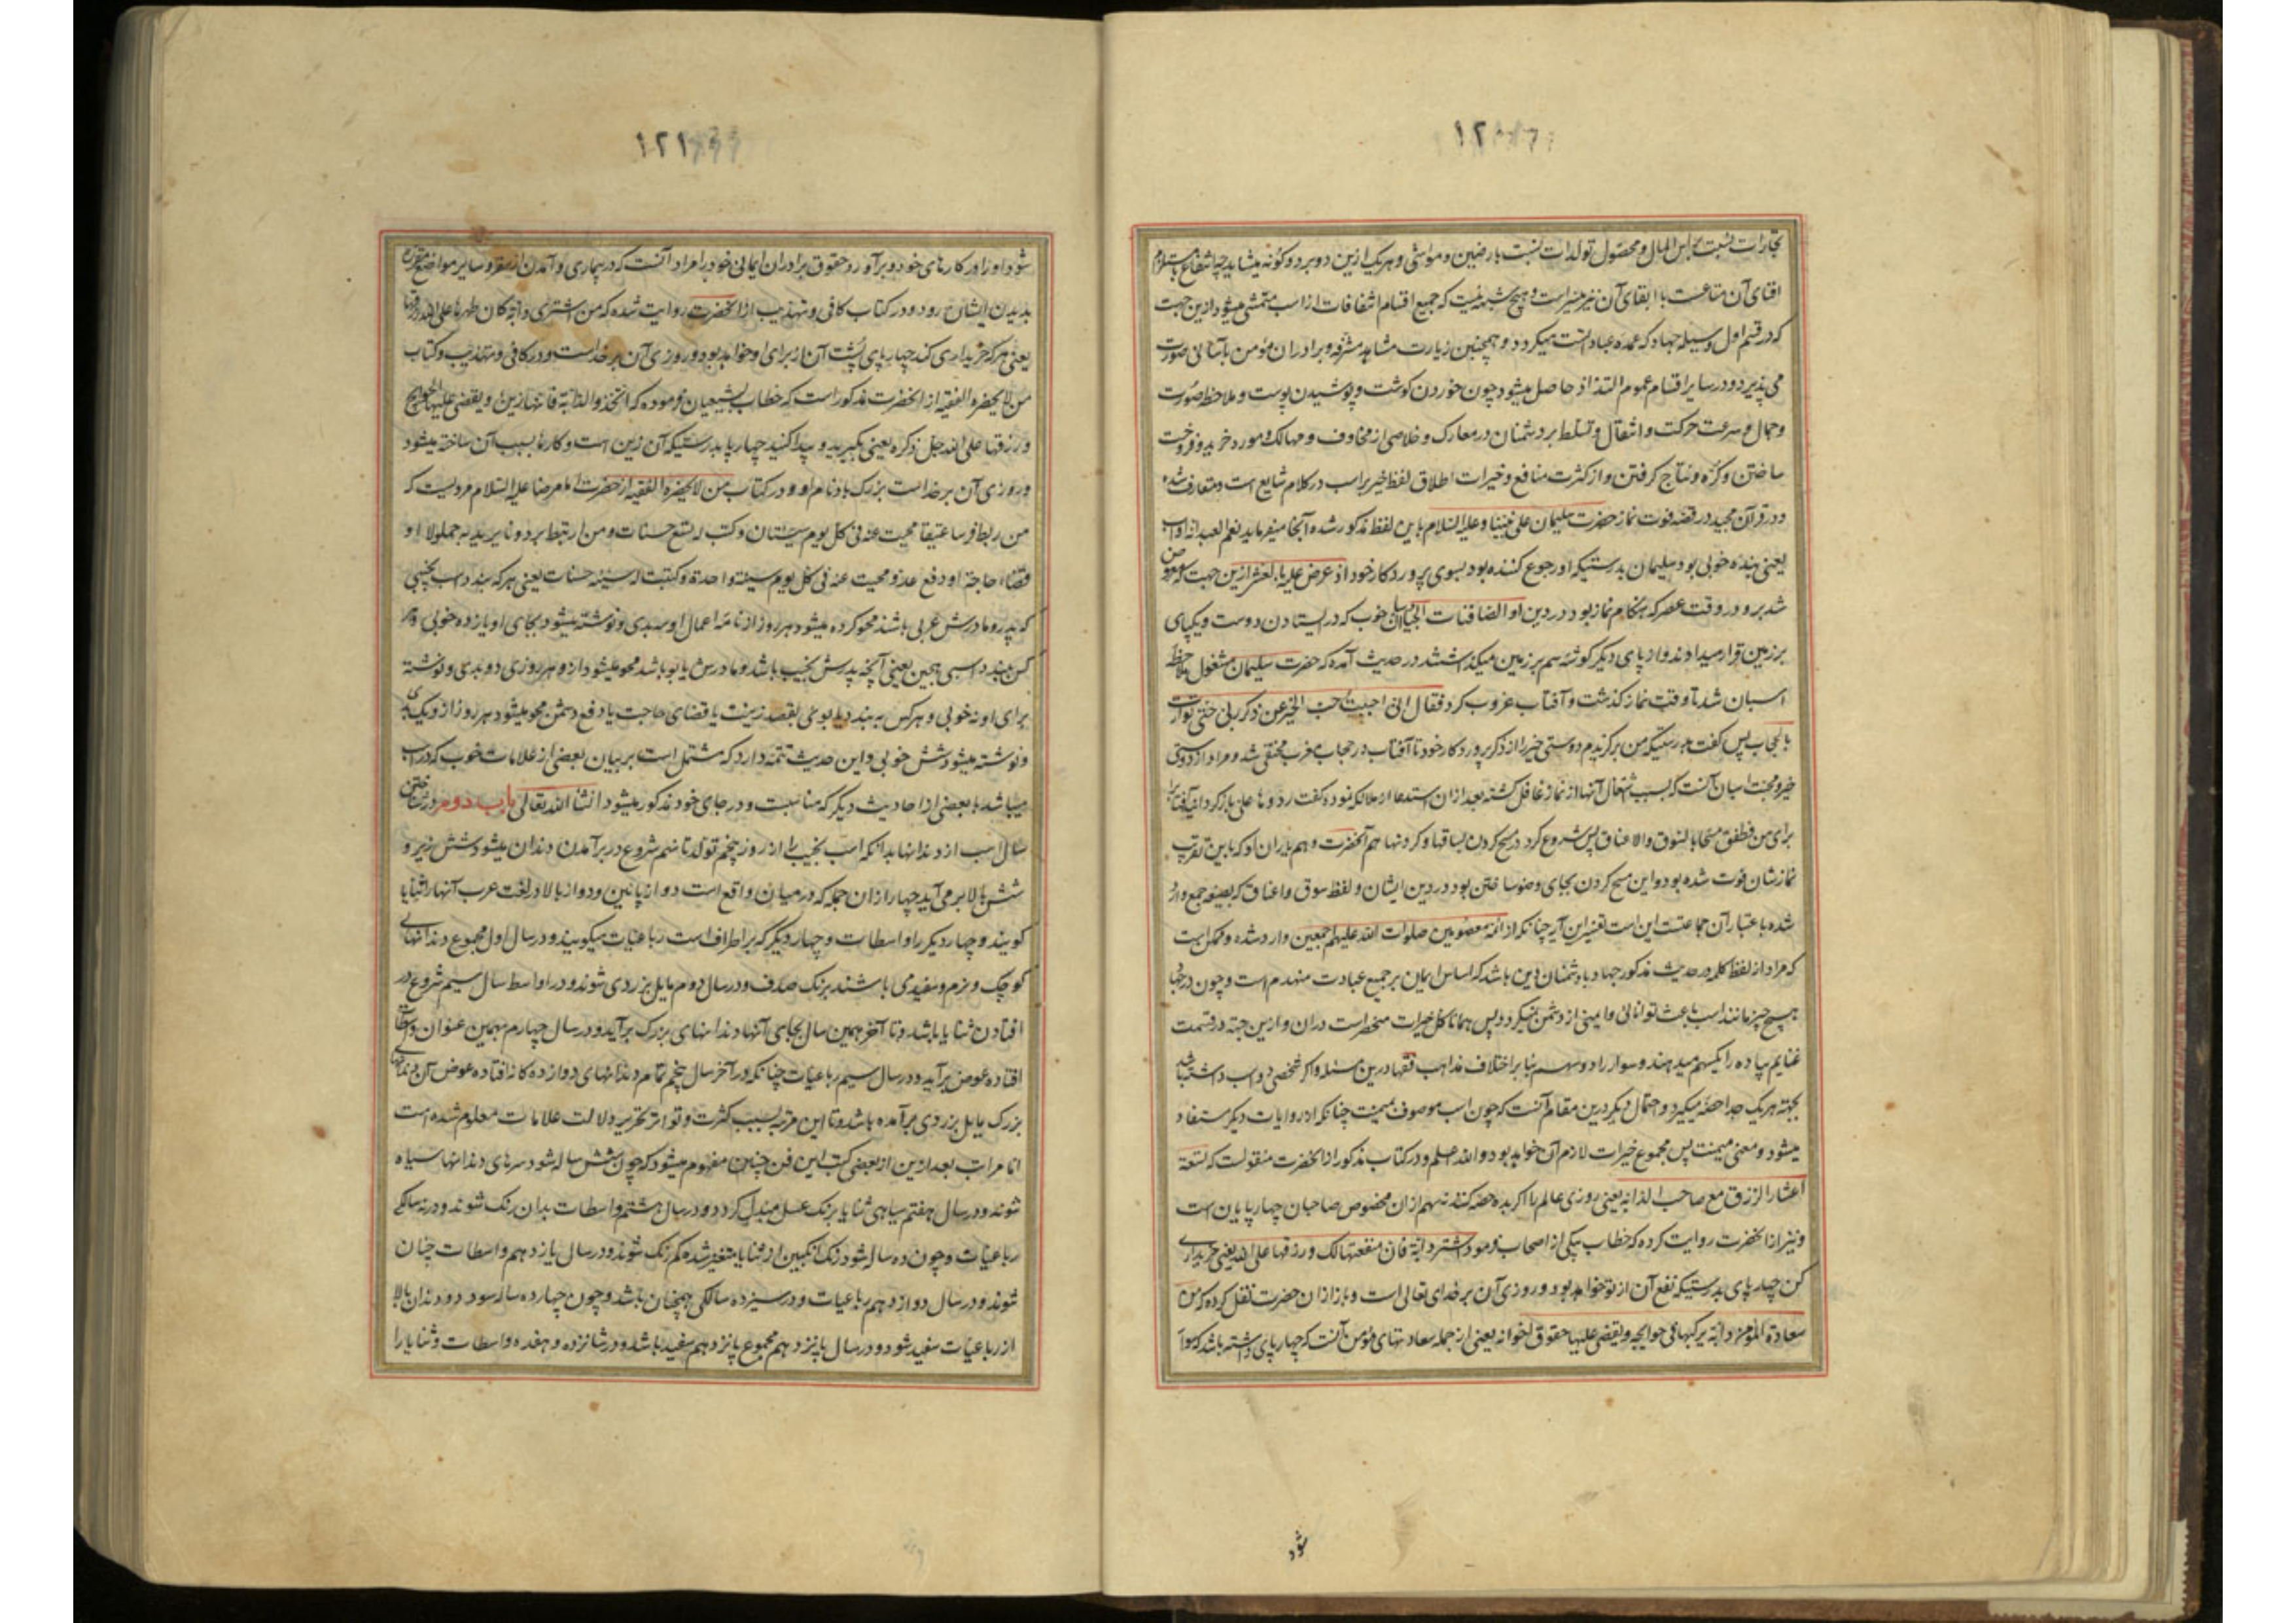 ۱۲
تجارات نسبت براس المال و محصول تولدات نسبت بارضین و مواشی و هریک ازین دو بر دو کونه میشاید چه انتفاع باستلزام
افنای آن متاعست با ابقای آن نیز میسر است و هیچ شبهه نیست که جمیع اقسام انتفاعات از اسب متمشی میشود ازین جهت
که در قسم اول وسیله جهاد که عمده عباداتست میکردد و همچنین زیارت مشاهد مشرفه و برادران مؤمن بآسانی صورت
می پذیرد و در سایر اقسام عموم التذاذ حاصل میشود چون خوردن کوشت و پوشیدن پوست و ملاحظه صورت
و جمال و سرعت حرکت و انتقال و تسلط بر دشمنان در معارک و خلاصی از مخاوف و مهالک و مورد خرید و فروخت
ساختن و کرّه و نتاج کرفتن و از کثرت منافع و خیرات اطلاق لفظ خیر براسب در کلام شایع است و متعارف شده
و در قرآن مجید در قصه فوت نماز حضرت سلیمان علی نبینا و علیه السلام باین لفظ مذکور شده آنجا میفرماید نعم العبد انه اواب
یعنی بنده خوبی بود سلیمان بدرستیکه او رجوع کننده بود بسوی پرورد کار خود اذ عرض علیه بالعشی ازین جهت که معروض
شد برو در وقت عصر که هنکام نماز بود در دین او الصافنات الجیاد اسبان خوب که در ایستادن دو دست و یکپای
بر زمین قرار میدادند و از پای دیکر کوشه سم بر زمین میکذاشتند در حدیث آمده که حضرت سلیمان مشغول ملاحظه
اسبان شد تا وقت نماز کذشت و آفتاب غروب کرد فقال انی احببت حب الخیر عن ذکر ربی حتی توارت
بالحجاب پس کفت بدرستیکه من برکزیدم دوستی خیر را از ذکر پرورد کار خود تا آفتاب در حجاب مغرب مختفی شد و مراد از دوستی
خیر و محبت اسبان آنست که بسبب اشتغال آنها از نماز غافل کشته بعد ازان استدعا از ملائکه نموده کفت ردوها علی باز کردانید آفتاب را
برای من فطفق مسحا بالسوق والاعناق پس شروع کرد در مسح کردن بساقها و کردنها هم آنحضرت و هم یاران او که باین تقریب
نمازشان فوت شده بود و این مسح کردن بجای وضو ساختن بود در دین ایشان و لفظ سوق و اعناق که بصیغه جمع وارد
شده باعتبار آن جماعتست این است تفسیر این آیه چنانکه از ائمه معصومین صلوات الله علیهم اجمعین وارد شده و محتمل است
که مراد از لفظ کلمه در حدیث مذکور جهاد بادشمنان دین باشد که اساس ایمان بر جمیع عبادت منهدم است و چون در جهاد
هیچ چیز مانند اسب باعث توانائی و ایمنی از دشمن نمیکردد پس همانا کل خیرات منحصر است دران و ازین جهة در قسمت
غنایم پیاده را یکسهم میدهند و سوار را دو سهم بنابر اختلاف مذاهب فقها درین مسئله و اکر شخصی دو اسب داشته باشد
بجهة هریک جدا حصه میکیرد و احتمال دیکر درین مقام آنست که چون اسب موصوف بمیمنت چنانکه از روایات دیکر مستفاد
میشود و معنی میمنت پس مجموع خیرات لازم آن خواهد بود و الله اعلم و در کتاب مذکور ازانحضرت منقولست که تسعة
اعشار الرزق مع صاحب الدابه یعنی روزی عالم را اکر بده حصه کنند نه سهم ازان مخصوص صاحبان چهارپایان است
و نیز ازانحضرت روایت کرده که خطاب بیکی از اصحاب فرمود اشتر دابة فان منفعتها لک و رزقها علی الله یعنی خریداری
کن چهارپای بدرستیکه نفع آن از تو خواهد بود و روزی آن بر خدای تعالی است و باز ازان حضرت نقل کرده که من
سعادة المؤمن دابة یرکبها فی حوایجه و یقضی علیها حقوق اخوانه یعنی از جمله سعادتهای مؤمن آنست که چهارپای داشته باشد که سوار
شود
۱۲۱
شود او را در کارهای خود و برآورد حقوق برادران ایمانی خود را مراد آنست که در بیماری و آمدن از سفر و سایر مواضع مقرره
بدیدن ایشان رود و در کتاب کافی و تهذیب ازانحضرت روایت شده که من اشتری دابة کان ظهرها علی الله رزقها
یعنی هرکه خریداری کند چهارپای پُشت آن از برای او خواهد بود و روزی آن بر خداست و در کافی و تهذیب و کتاب
من لایحضره الفقیه از انحضرت مذکور است که خطاب بشیعیان فرموده که اتخذوا الدابة فانها زین و یقضی علیها الحوایج
و رزقها علی الله جل ذکره یعنی بکیرید و پیدا کنید چهارپا بدرستیکه آن زین است و کارها بسبب آن ساخته میشود
و روزی آن بر خداست بزرک باد نام او و در کتاب من لایحضره الفقیه از حضرت امام رضا علیه السلام مرویست که
من ربط فرسا عتیقا محیت عنه فی کل یوم سیئتان و کتب له تسع حسنات و من ارتبط برذونا یرید به جمالا او
قضاء حاجة او دفع عدو محیت عنه فی کل یوم سیئة واحدة و کتبت له ستة حسنات یعنی هر که ببندد اسب نجیبی
که پدر و مادرش عربی باشند محو کرده میشود هر روز از نامه اعمال او سه بدی و نوشته میشود بجای او یازده خوبی و هر
کس ببندد اسبی هجین یعنی آنچه پدرش نجیب باشد و مادرش یابو باشد محو میشود ازو هر روزی دو بدی و نوشته
برای او نه خوبی و هر کس به بندد یابوئی بقصد زینت یا قضای حاجت یا دفع دشمن محو میشود هر روز ازو یک بدی
و نوشته میشود شش خوبی و این حدیث تتمه دارد که مشتمل است بر بیان بعضی از علامات خوب که در اسب
میباشد با بعضی از احادیث دیکر که مناسبست و در جای خود مذکور میشود انشاء الله تعالی باب دوم در شناختن
سال اسب از دندانها بدانکه اسب نجیب را از روز پنجم تولد تا نهم شروع در برآمدن دندان میشود شش زیر و
شش بالا بر می آید چهار ازان جمله که در میان واقع است دو از پائین و دو از بالا در لغت عرب آنها را ثنایا
کویند و چهار دیکر را واسطات و چهار دیکر که بر اطراف است رباعیات میکویند و در سال اول مجموع دندانهای
کوچک و نرم و سفید می باشند برنک صدف و در سال دوم مایل بزردی شوند و در اواسط سال سیم شروع در
افتادن ثنایا باشد و تا آخر همین سال بجای آنها دندانهای بزرک برآید و در سال چهارم بهمین عنوان واسطات
افتاده عوض برآید و در سال سیم رباعیات چنانکه در آخر سال پنجم تمام دندانهای دوازده کانه افتاده عوض آن دندانهای
بزرک مایل بزردی برآمده باشد و تا این مرتبه بسبب کثرت و تواتر تحریر دلالت علامات معلوم شده است
اما مراتب بعد ازین از بعضی کتب این فن چنین مفهوم میشود که چون شش ساله شود سرهای دندانها سیاه
شوند و در سال هفتم سیاهی ثنایا برنک عسل مبدل کردد و در سال هشتم واسطات بدان رنک شوند و در نه سالکی
رباعیات و چون ده ساله شود رنک انکبین از ثنایا متغیر شده کم رنک شوند و در سال یازدهم واسطات چنان
شوند و در سال دوازدهم رباعیات و در سیزده سالکی همچنان باشد و چون چهارده ساله شود دو دندان بالا
از رباعیات سفید شود و در سال پانزدهم مجموع پانزدهم سفید باشد و در شانزده و هفده واسطات و ثنایا را